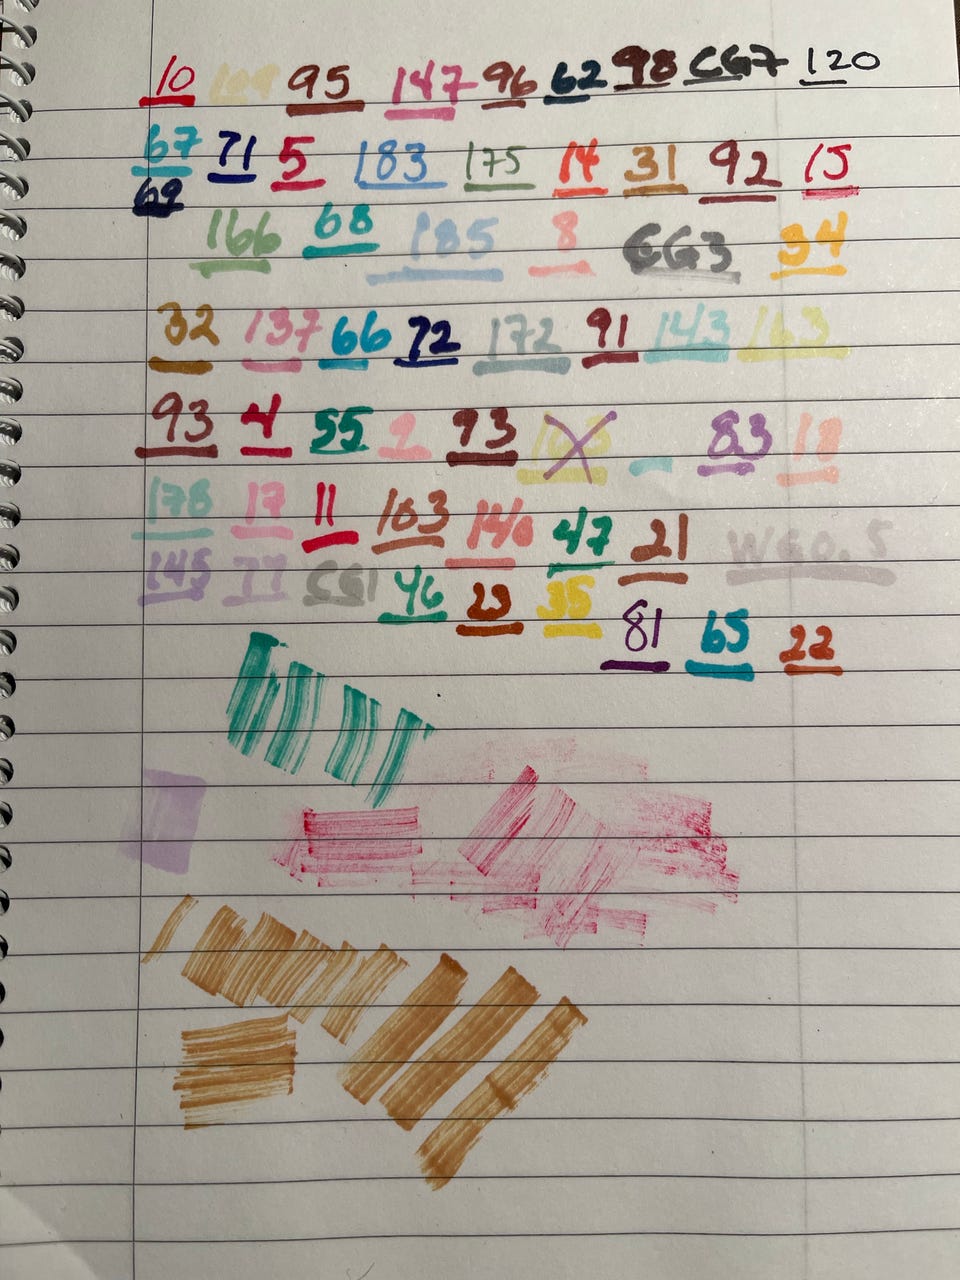 10 109 95 147 96 62 98 CG7 120
67 71 5 183 175 14 31 92 15
69
166 68 185 8 CG3 34
32 137 66 72 172 91 143 163
93 4 55 9 93 163 83 18
178 17 11 103 140 47 21 WG0.5
145 77 CG1 46 23 35
81 65 22